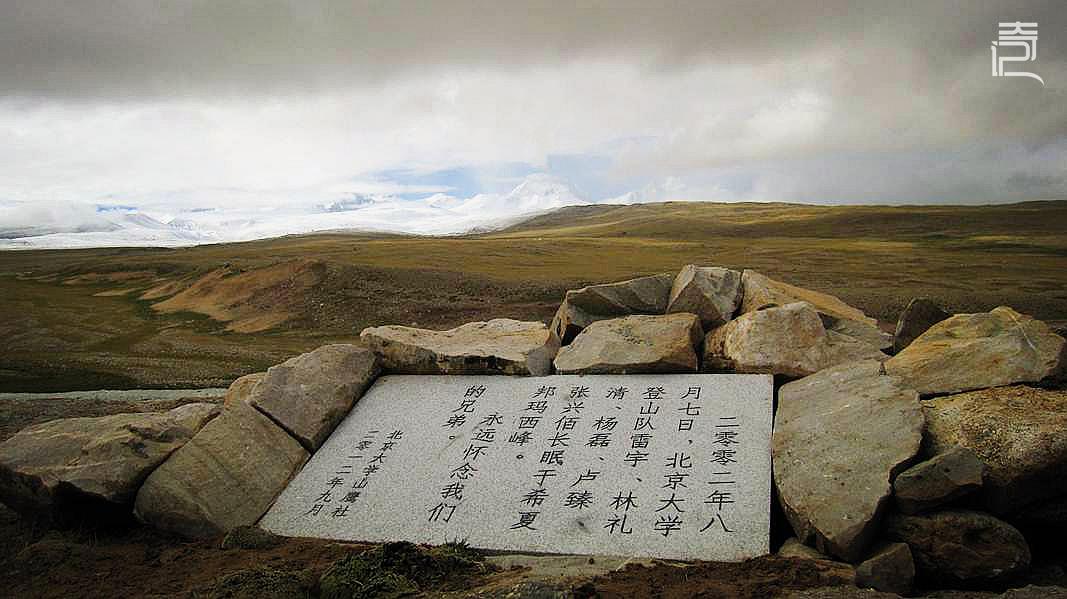 二零零二年八
月七日，北京大学
登山队雷宇、林礼
清、杨磊、卢臻
张兴佰长眠于希夏
邦玛西峰。
永远怀念我们
的兄弟。
北京大学山鹰社
二零一二年九月